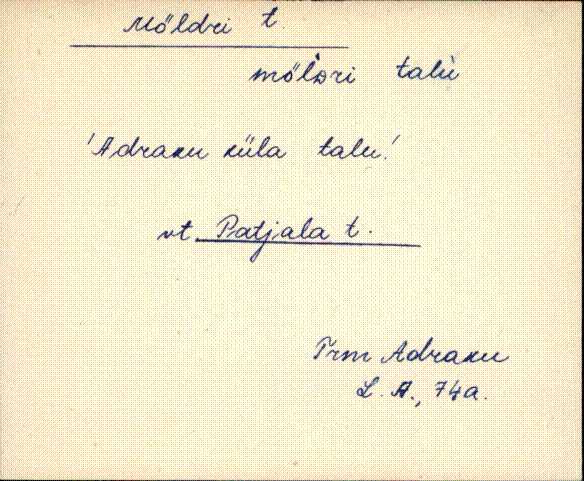 Möldri t.
möl̀dri talù
'Adraku küla talu'
vt Patjala t.
Trm Adraku
L. A., 74a.